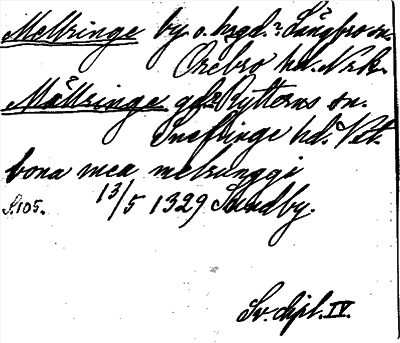 Mellringe by o. hrgd: Längbro sn.
Örebro hd. Nrk.
Mällringe gd: Rytterns sn.
Snefringe hd. Vst.
bona mea melrunggi
S.105. 13/5 1329 Sundby.
Sv. dipl. IV.